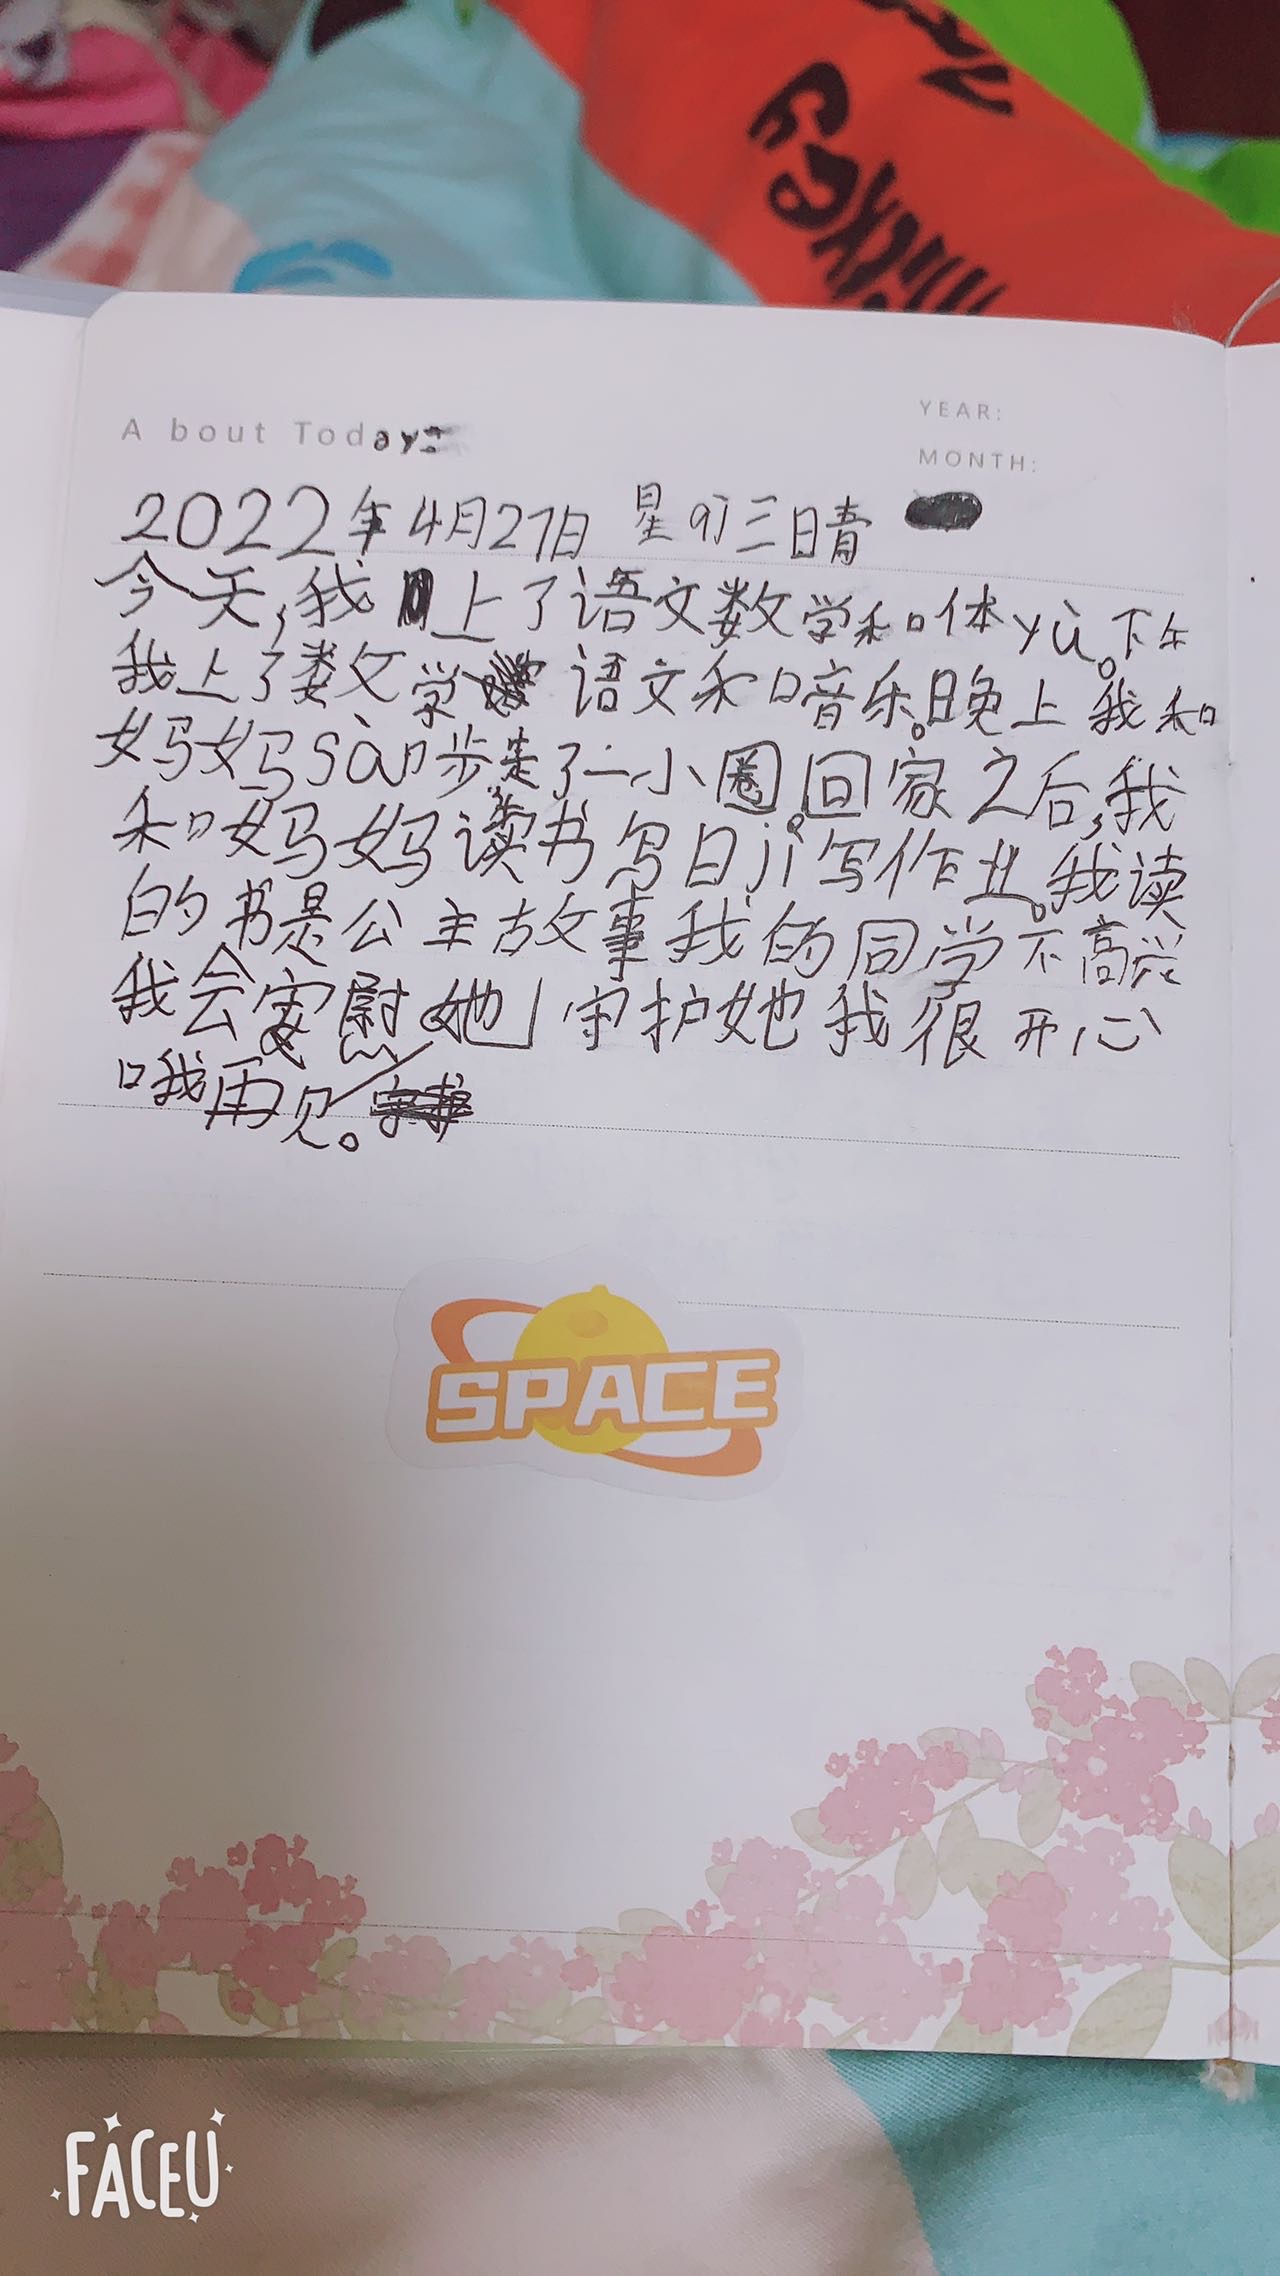 Mickey
YEAR:
About Today:
MONTH:
2022年4月27日 星期三 晴
今天,我上了语文数学和体yù。下午
我上了数文学语文和音乐。晚上我和
妈妈sàn步走了一小圈。回家之后,我
和妈妈读书写日jì写作业。我读
的书是公主故事我的同学不高兴
我会安慰她守护她我很开心
哦再见。
SPACE
FACEU